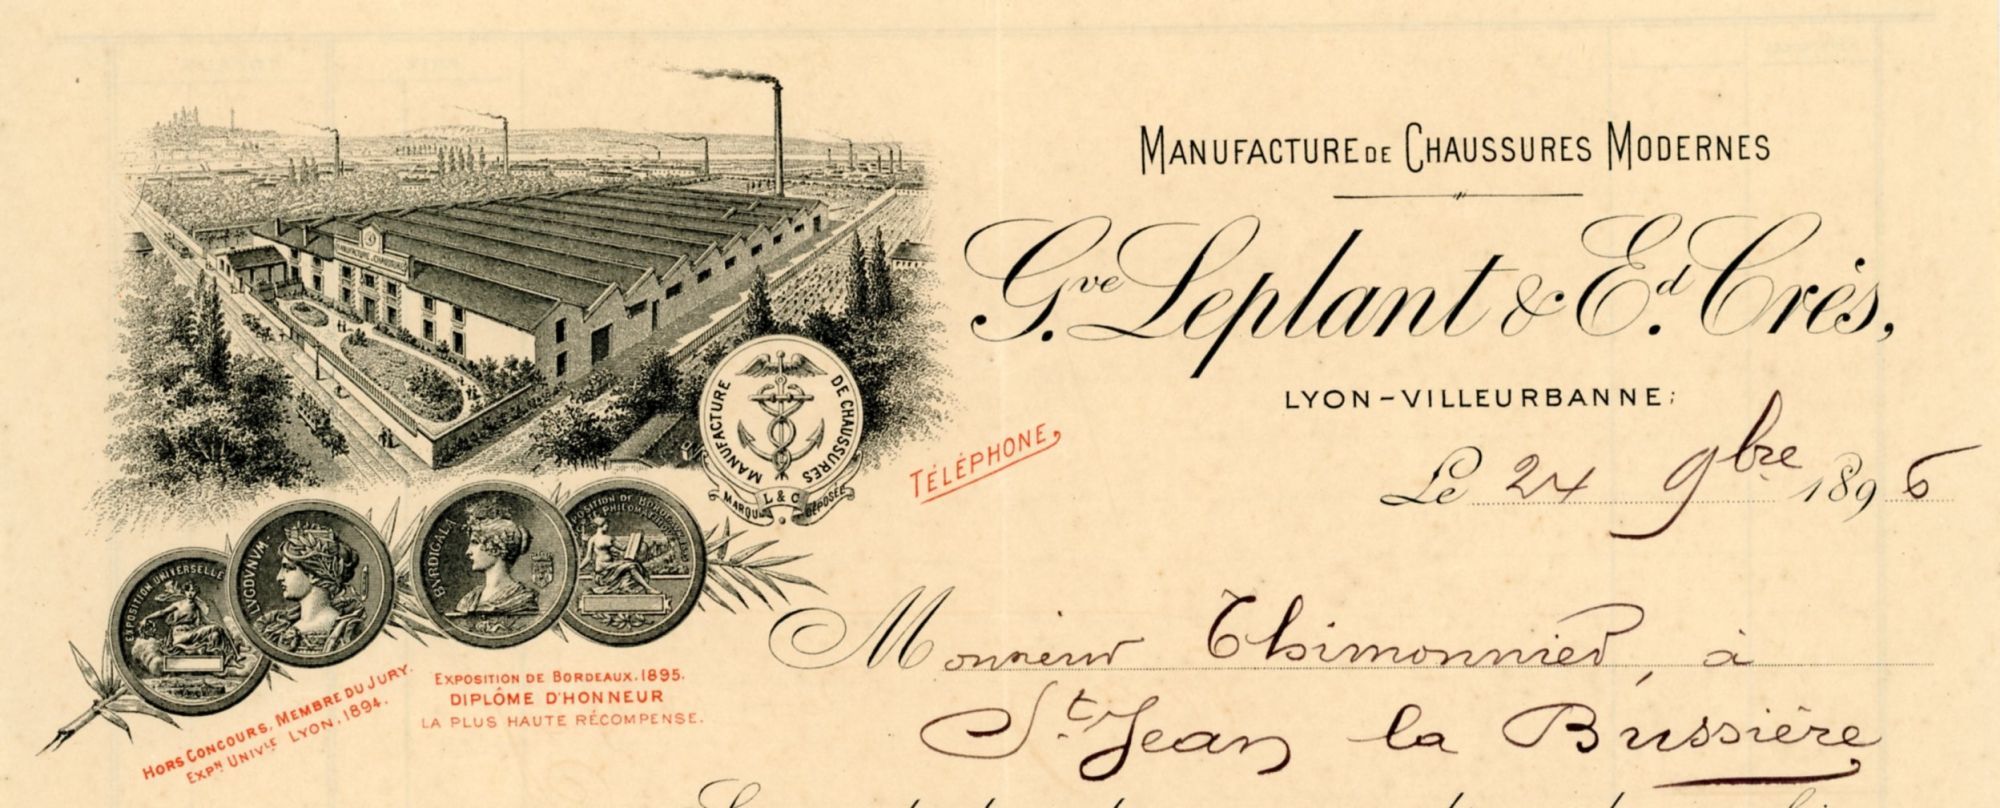 MANUFACTURE DE CHAUSSURES MODERNES
G.ve Leplant & E.d Crès,
LYON-VILLEURBANNE:
TÉLÉPHONE
Le 24 9bre 1896
Monsieur Thimonnier, à
St. Jean la Bussière
MANUFACTURE DE CHAUSSURES
MANUFACTURE DE CHAUSSURES
L & C
MARQUE DÉPOSÉE
EXPOSITION UNIVERSELLE
LVGDVNVM
BVRDIGALA
EXPOSITION DE BORDEAUX
HORS CONCOURS, MEMBRE DU JURY.
EXPN UNIVLE LYON, 1894.
EXPOSITION DE BORDEAUX. 1895.
DIPLÔME D'HONNEUR
LA PLUS HAUTE RÉCOMPENSE.